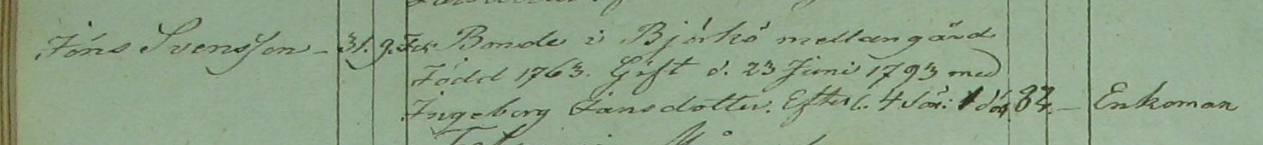 Jöns Svensson – 31. 9. Fd. Bonde i Björkö mellangård
Född 1763. Gift d. 23 Juni 1793 med
Ingeborg Jansdotter. Efterl. 4 Sön: 1 dot. 82. – Enkoman